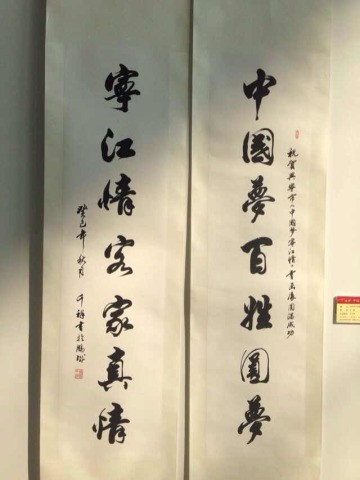 中國夢百姓圓夢
祝賀興寧市《中國梦寧江情》書画展圓滿成功
寧江情客家真情
癸巳年秋月
書於鵬城